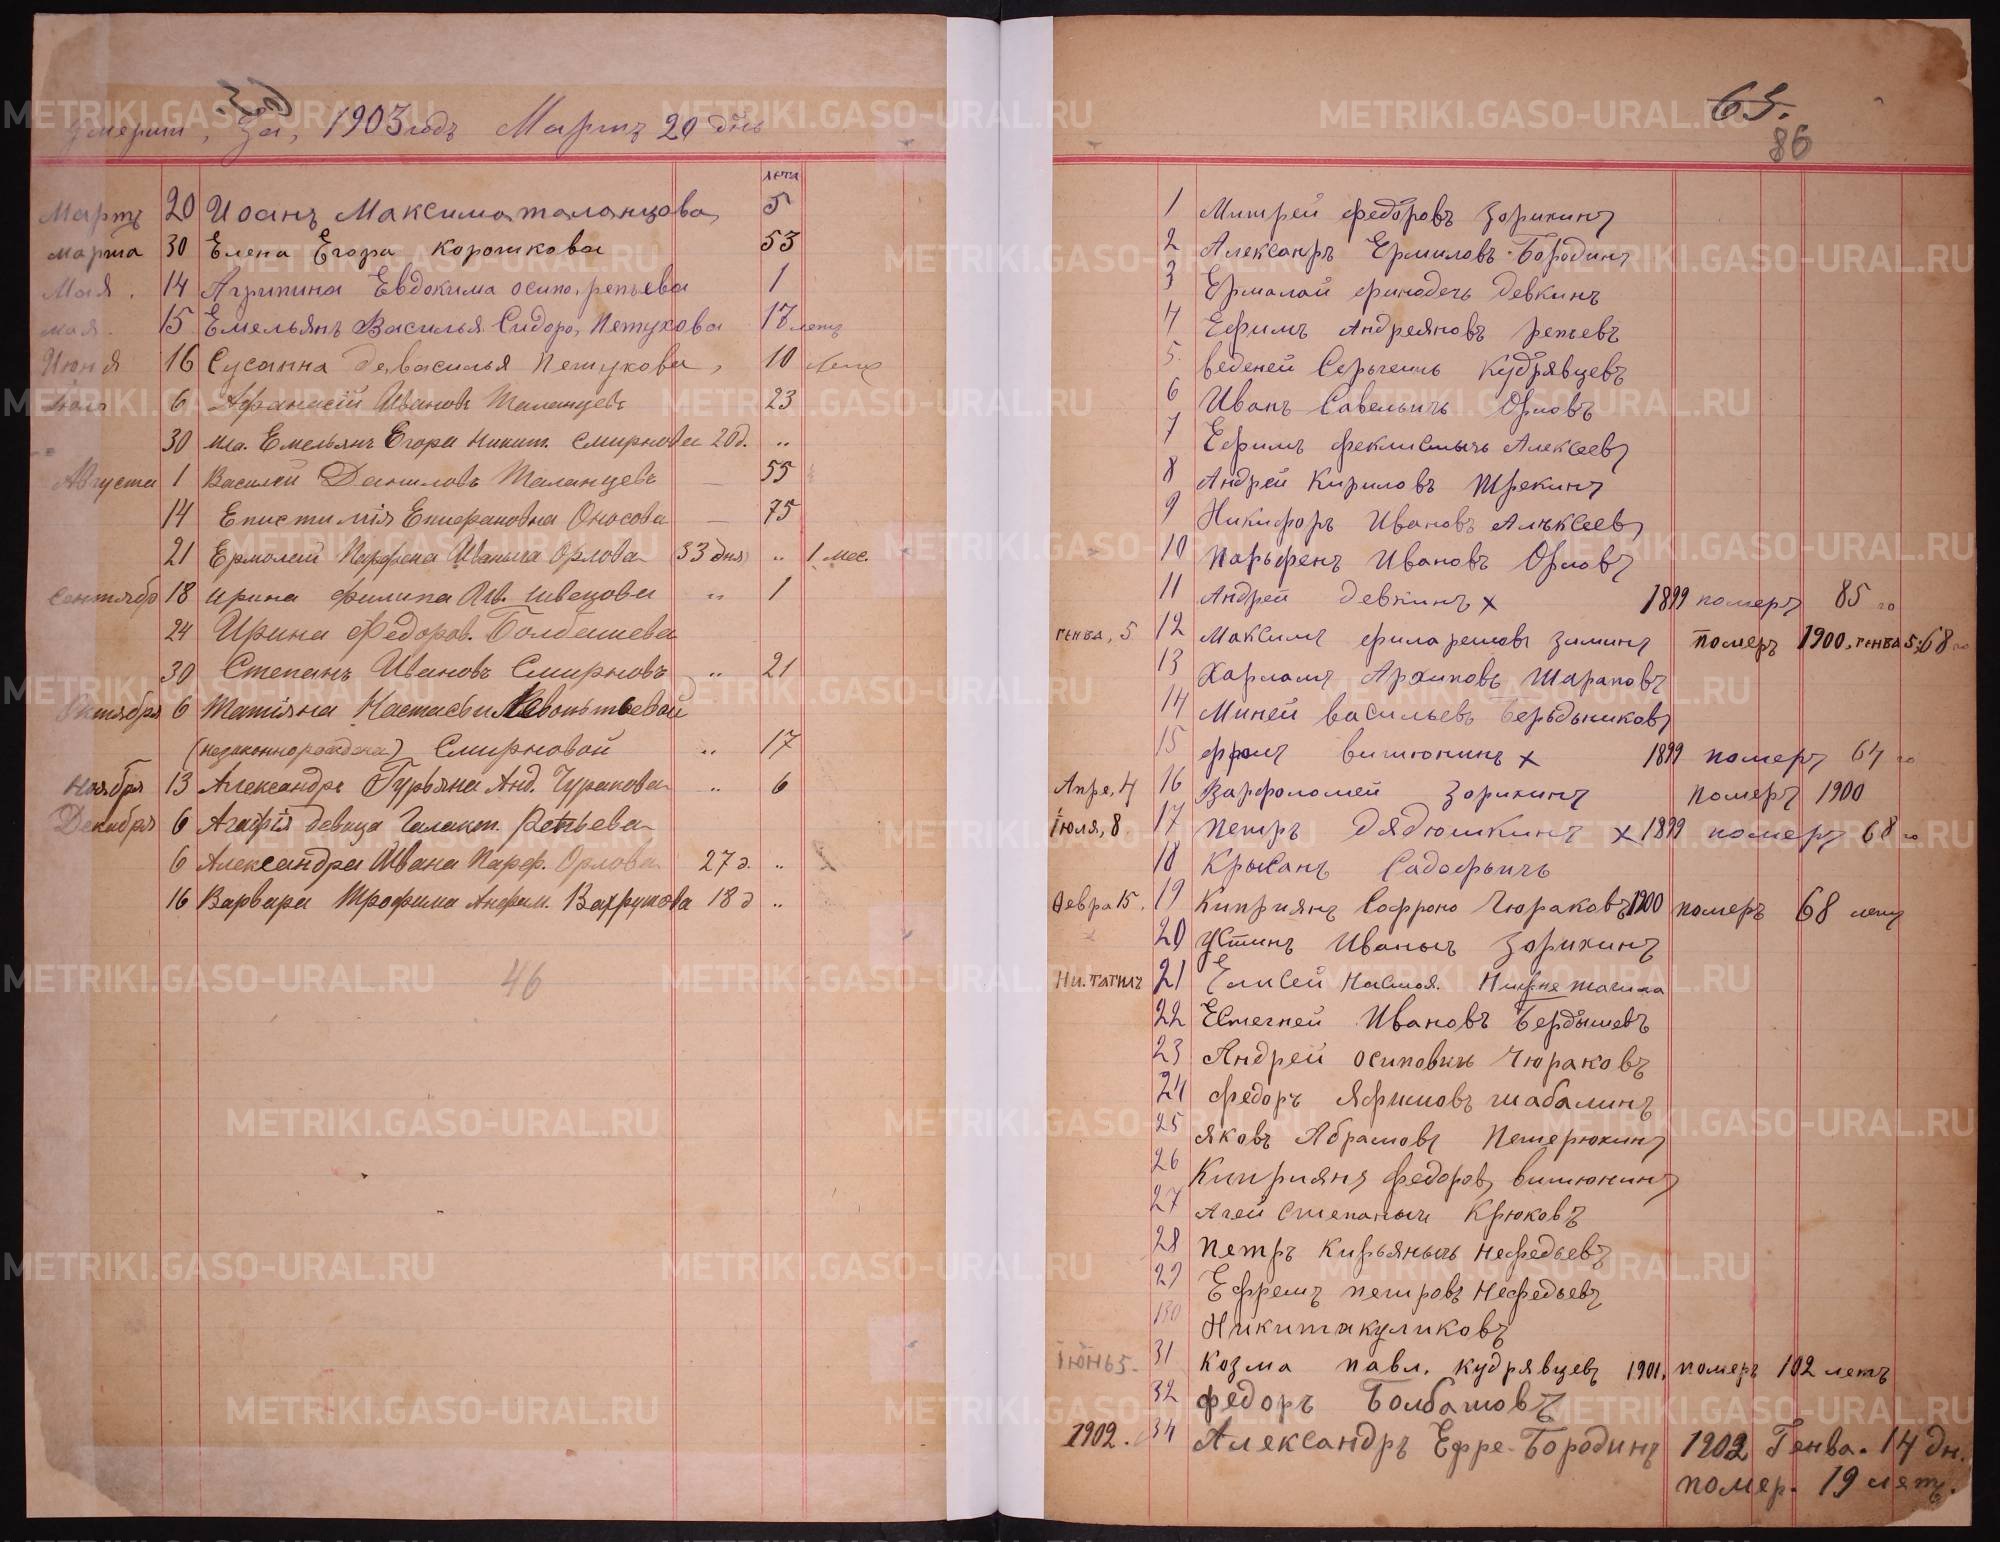 умерши, за, 1903 годъ Мартъ 20 днь
лета
Мартъ 20 Иоанъ Максима таланцова, 5
марта 30 Елена Егора Коро​шкова 53
Мая. 14 Агрипина Евдокима осипо. репьева 1
мая. 15 Емельянъ Василья Сидоро, Петухова 17 летъ
Июня 16 Сусанна Василья Петухова, 10
Июля 6 Афанасій Ивановъ Таланцевъ 23
30 мла. Емельянъ Егора Никит. Смирнова 20 д. „
Августа 1 Василей Даниловъ Таланцевъ — 55
14 Епистимія Епифановна Оносова — 75
21 Ермолей Парфена Иваныча Орлова 33 дня „ 1 мес.
Сентябр 18 Ирина Филипа Ив. Швецова „ 1
24 Ирина Федоров. Болбашева
30 Степанъ Ивановъ Смирновъ „ 21
Октября 6 Татіяна Настасьи Левонтьевой
(незаконнорождена) Смирновой „ 17
Ноября 13 Александръ Гурьяна Анд. Чуракова „ 6
Декабря 6 Агафія девица Галакт. Репьева
6 Александра Ивана Парф. Орлова 27 д. „
16 Варвара Трофима Анфим. Вахрушова 18 д „
46
65.
86
1 Митрей федоровъ Зорихинъ
2 Александръ Ермиловъ Бородинъ
3 Ермалай девкинъ
4 Ефимъ Андреяновъ репьевъ
5. веденей Сергеичь Кудрявцевъ
6 Иванъ Савельичь Орловъ
7 Ефимъ феклистычь Алексеевъ
8 Андрей Кириловъ Трекинъ
9 Никифоръ Ивановъ Алѣксеевъ
10 Парьфенъ Ивановъ Орловъ
11 Андрей девкинъ х 1899 померъ 85 го
генва, 5 12 Максимъ филаретовъ зиминъ померъ 1900, генва 5, 68 го
13 Харламъ Архиповъ Шараповъ
14 Миней васильевъ берьдьниковъ
15 фролъ витюнинъ х 1899 померъ 64 го
Апре, 4 16 Варфоломей Зорихинъ померъ 1900
Іюля, 8 17 Петръ Дядюшкинъ х 1899 померъ 68 го
18 Крысанъ Садофьичъ
Февра 15. 19 Киприянъ Софроно Чюраковъ 1900 померъ 68 летъ
20 Устинъ Иваныч Зорихинъ
Ни. тагилъ 21 Елисей Настоя. Нижне тагила
22 Естегней Ивановъ Бердышевъ
23 Андрей осиповичь Чюраковъ
24 федоръ Яфимовъ шабалинъ
25 яковъ Абрамовъ Петерюхинъ
26 Киприянъ федоровъ витюнинъ
27 Агей Степаныч Крюковъ
28 Петръ Кирьянычь Нефедьевъ
29 Ефремъ петровъ Нефедьевъ
30 Никита куликовъ
Іюнь 5. 31 Козма павл. кудрявцевъ 1901. померъ 102 летъ
32 федоръ Болбашовъ
1902. 34 Александръ Ефре. Бородинъ 1902 Генва. 14 дн.
помер. 19 летъ.
METRIKI.GASO-URAL.RU